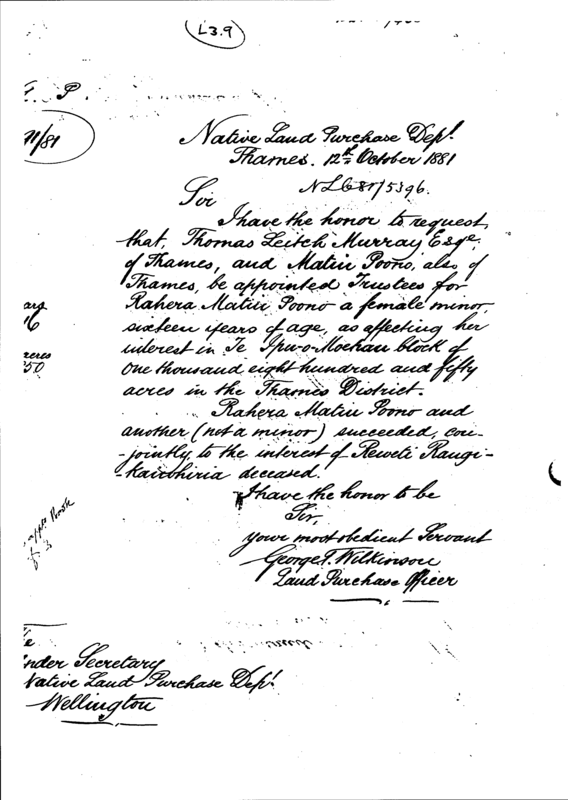 L3.9
P.
/81
Native Land Purchase Dept.
Thames. 12th October 1881
NLC 81/5396.
Sir
I have the honor to request,
that, Thomas Leitch Murray Esqre.
of Thames, and Matiu Poono, also of
Thames, be appointed Trustees for
Rahera Matiu Poono a female minor,
sixteen years of age, as affecting her
interest in Te Ipu-o-Moehau block of
one thousand eight hundred and fifty
acres in the Thames District.
acres
50
Rahera Matiu Poono and
another (not a minor) succeeded, con-
-jointly, to the interest of Reweti Rangi-
deceased.
I have the honor to be
Sir,
your most obedient Servant
George T. Wilkinson
Land Purchase Officer
nder Secretary
Native Land Purchase Dept.
Wellington